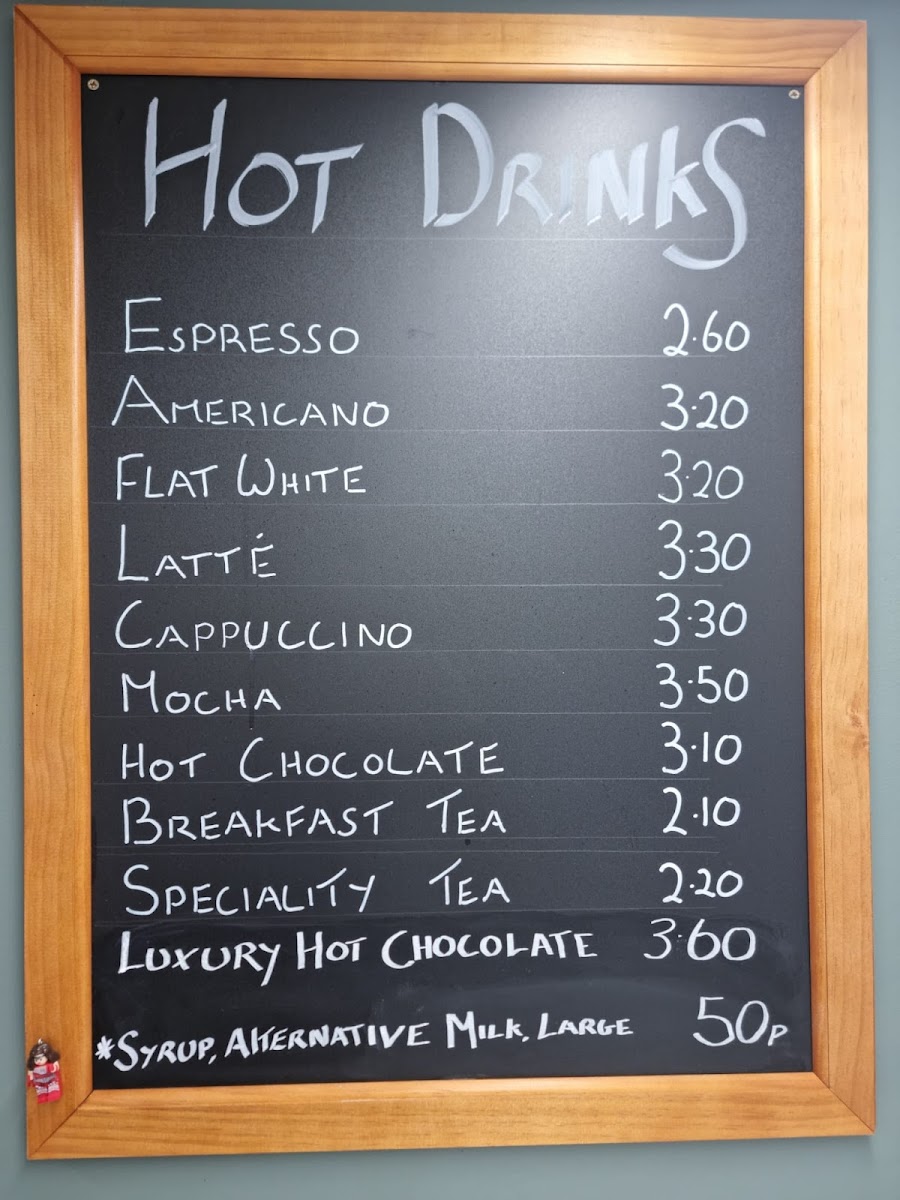 Hot Drinks
Espresso 2.60
Americano 3.20
Flat White 3.20
Latté 3.30
Cappuccino 3.30
Mocha 3.50
Hot Chocolate 3.10
Breakfast Tea 2.10
Speciality Tea 2.20
Luxury Hot Chocolate 3.60
*Syrup, Alternative Milk, Large 50p